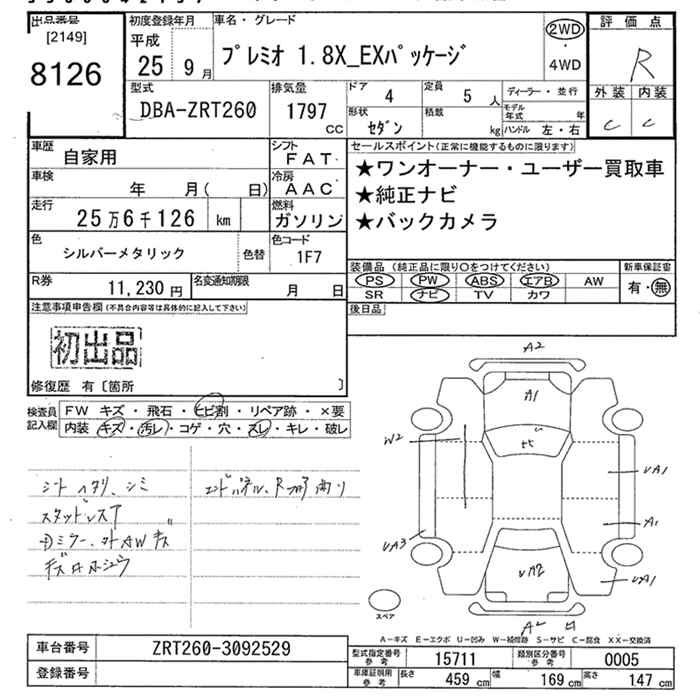 出品番号 [2149] 8126
初度登録年月 平成 25 9月
車名・グレード プレミオ 1.8X_EXパッケージ
2WD・4WD
評価点 R
外装 C 内装 C
型式 DBA-ZRT260
排気量 1797 CC
ドア 4
定員 5 人
形状 セダン
積載 kg
ディーラー・並行
モデル年式 年
ハンドル 左・右
車歴 自家用
シフト FAT
車検 年 月( 日)
冷房 AAC
走行 25万6千126 km
燃料 ガソリン
色 シルバーメタリック 色替
色コード 1F7
R券 11,230円
名変通知期限 月 日
セールスポイント(正常に機能するものに限ります)
★ワンオーナー・ユーザー買取車
★純正ナビ
★バックカメラ
装備品 (純正品に限り○をつけてください)
PS PW ABS エアB AW
SR ナビ TV カワ
新車保証書 有・無
後日品
注意事項申告欄(不具合内容等は具体的に記入して下さい)
初出品
修復歴 有〔箇所 〕
検査員記入欄
FW キズ・飛石・ヒビ割・リペア跡・×要
内装 キズ・汚レ・コゲ・穴・スレ・キレ・破レ
シートヘタリ、シミ
スタッドレス
エンドパネル、R
A2
A1
W2
UA1
A1
UA3
UA2
UA1
A2
スペア
A-キズ E-エクボ U-凹み W-補修跡 S-サビ C-腐食 XX-交換済
車台番号 ZRT260-3092529
登録番号
型式指定番号 参考 15711
類別区分番号 参考 0005
車庫証明用 参考 長さ 459 cm 幅 169 cm 高さ 147 cm